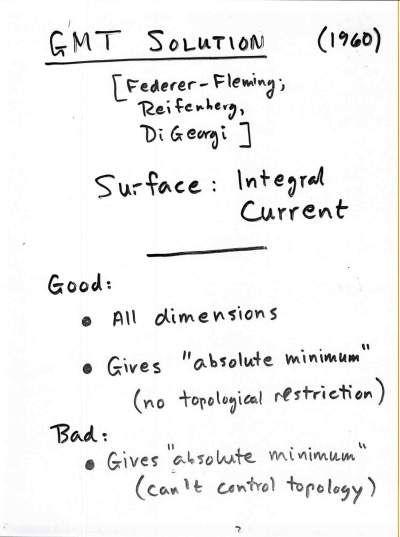 GMT SOLUTION (1960)
[Federer-Fleming;
Reifenberg,
DiGeorgi]
Surface: Integral
Current
Good:
• All dimensions
• Gives "absolute minimum"
(no topological restriction)
Bad:
• Gives "absolute minimum"
(can't control topology)
2